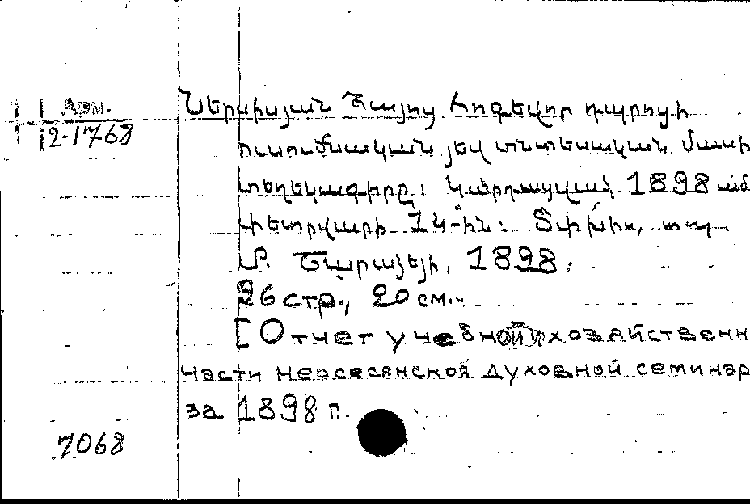 Арм.
2-1768
Ներսիսյան Հայոց հոգեվոր դպրոցի
ուսումնական յեվ տնտեսական մասի
տեղեկագիրը: Կարդացված 1898 ամի
փետրվարի 24-ին: Տփխիս, տպ.
Մ. Շարաձեյի, 1898.
26 стр., 20 см.
[Отчет учебной и хозяйственн
части Нерсесянской духовной семинар
за 1898 г.
7068